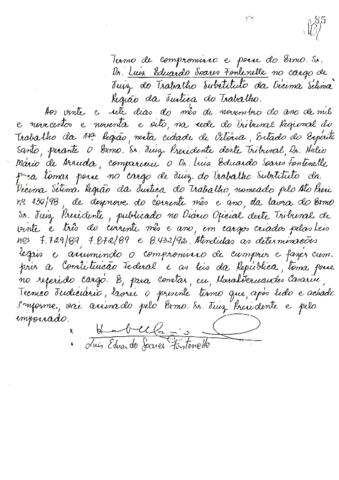 85
Termo de compromisso e posse do Exmo. Sr.
Dr. Luis Eduardo Soares Fontenelle no cargo de
Juiz do Trabalho Substituto da Décima Sétima
Região da Justiça do Trabalho.
Aos vinte e sete dias do mês de novembro do ano de mil
e novecentos e noventa e oito, na sede do Tribunal Regional do
Trabalho da 17ª Região, nesta cidade de Vitória, Estado do Espírito
Santo, perante o Exmo. Sr. Juiz Presidente deste Tribunal, Dr. Helio
Mário de Arruda, compareceu o Dr. Luis Eduardo Soares Fontenelle
para tomar posse no cargo de Juiz do Trabalho Substituto da
Décima Sétima Região da Justiça do Trabalho, nomeado pelo Ato Presi
nº 136/98, de dezenove do corrente mês e ano, da lavra do Exmo
Sr. Juiz Presidente, publicado no Diário Oficial deste Tribunal de
vinte e três do corrente mês e ano, em cargos criados pelas Leis
nos 7.729/89, 7.872/89 e 8.432/92. Atendidas as determinações
legais e assumindo o compromisso de cumprir e fazer cum-
prir a Constituição Federal e as leis da República, toma posse
no referido cargo. E, para constar, eu,
Técnico Judiciário, lavrei o presente termo que, após lido e achado
conforme, vai assinado pelo Exmo. Sr. Juiz Presidente e pelo
empossado.
Luis Eduardo Soares Fontenelle